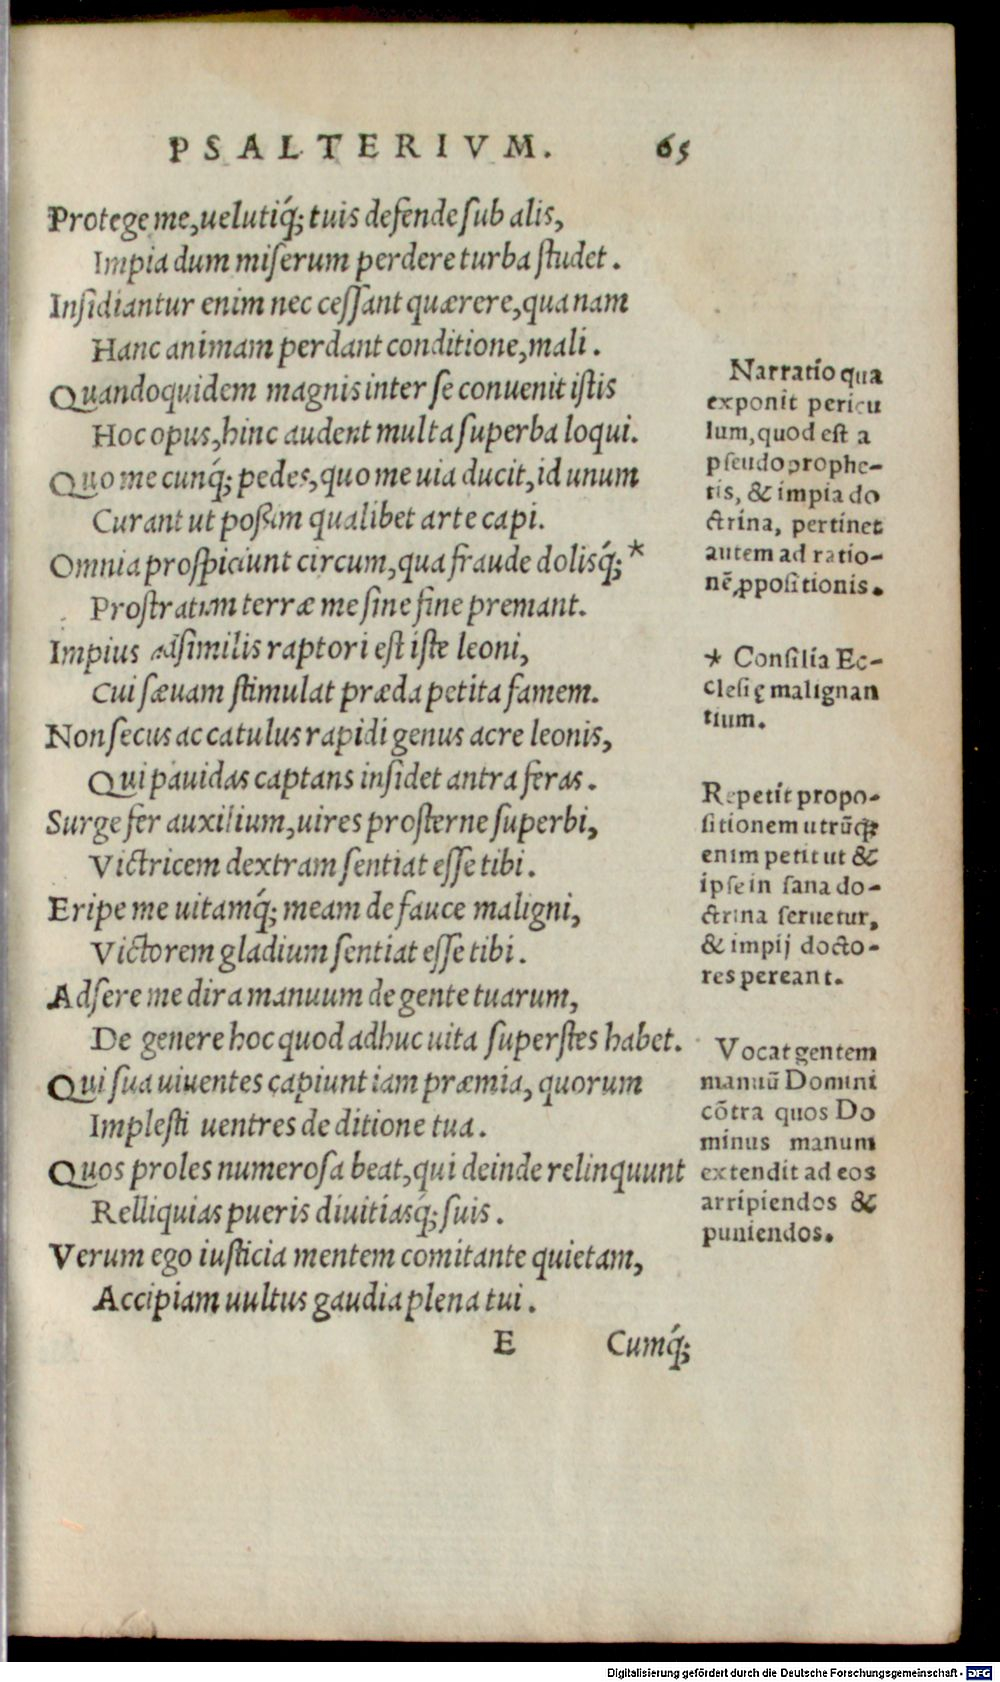 PSALTERIVM. 65
Protege me, uelutiq́; tuis defende sub alis,
Impia dum miserum perdere turba studet.
Insidiantur enim nec cessant quærere, qua nam
Hanc animam perdant conditione, mali.
Quandoquidem magnis inter se conuenit istis
Hoc opus, hinc audent multa superba loqui.
Quo me cunq́; pedes, quo me uia ducit, id unum
Curant ut possim qualibet arte capi.
Omnia prospiciunt circum, qua fraude dolisq́; *
Prostratum terræ me sine fine premant.
Impius adsimilis raptori est iste leoni,
Cui sæuam stimulat præda petita famem.
Non secus ac catulus rapidi genus acre leonis,
Qui pauidas captans insidet antra feras.
Surge fer auxilium, uires prosterne superbi,
Victricem dextram sentiat esse tibi.
Eripe me uitamq́; meam de fauce maligni,
Victorem gladium sentiat esse tibi.
Adsere me dira manuum de gente tuarum,
De genere hoc quod adhuc uita superstes habet.
Qui sua uiuentes capiunt iam præmia, quorum
Implesti uentres de ditione tua.
Quos proles numerosa beat, qui deinde relinquunt
Relliquias pueris diuitiasq́; suis.
Verum ego iusticia mentem comitante quietam,
Accipiam uultus gaudia plena tui.
E Cumq́;
Narratio qua
exponit pericu
lum, quod est a
pseudoprophe-
tis, & impia do
ctrina, pertinet
autem ad ratio-
nẽ ꝓpositionis.
* Consilia Ec-
clesię malignan
tium.
Repetit propo-
sitionem utrũq;
enim petit ut &
ipse in sana do-
ctrina seruetur,
& impij docto-
res pereant.
Vocat gentem
manuũ Domini
cõtra quos Do
minus manum
extendit ad eos
arripiendos &
puniendos.
Digitalisierung gefördert durch die Deutsche Forschungsgemeinschaft - DFG